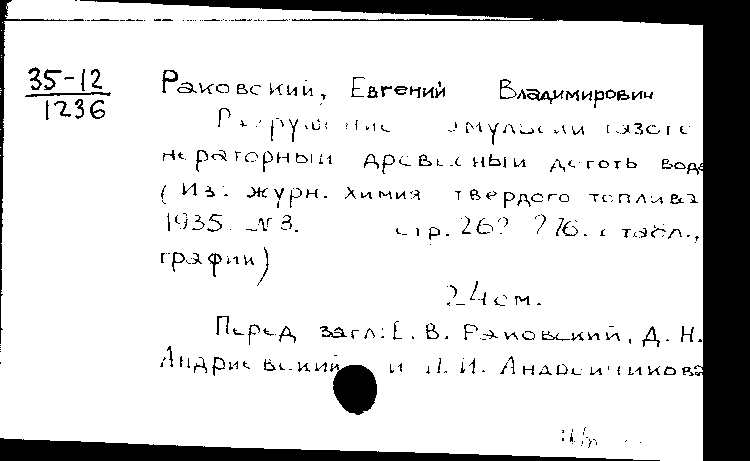 35-12
1236
Раковский, Евгений Владимирович
Разрушение эмульсии газоге
нераторный древесный деготь вода
(Из: журн. Химия твердого топлива
1935. №3. стр. 276. с табл.,
графии)
24 см.
Перед загл: Е. В. Раковский, Д. Н.
Андриевский и И.